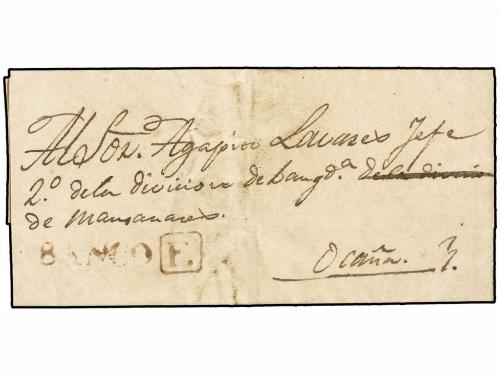 Al Sor. D. Agapito Lavares Jefe
2.º de la division de bangd.ª de la divicin
de Mansanares.
BANCO F.
Ocaña.